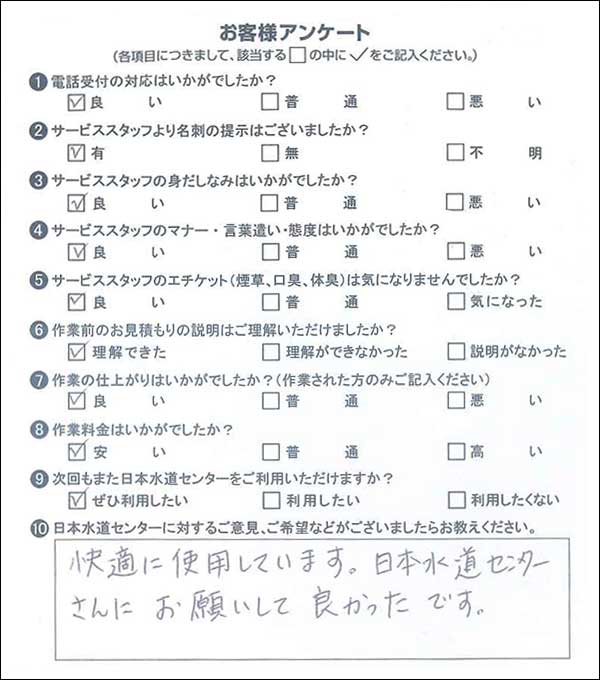 お客様アンケート
(各項目につきまして、該当する□の中に✓をご記入ください。)
❶電話受付の対応はいかがでしたか?
☑良い □普通 □悪い
❷サービススタッフより名刺の提示はございましたか?
☑有 □無 □不明
❸サービススタッフの身だしなみはいかがでしたか?
☑良い □普通 □悪い
❹サービススタッフのマナー・言葉遣い・態度はいかがでしたか?
☑良い □普通 □悪い
❺サービススタッフのエチケット(煙草、口臭、体臭)は気になりませんでしたか?
☑良い □普通 □気になった
❻作業前のお見積もりの説明はご理解いただけましたか?
☑理解できた □理解ができなかった □説明がなかった
❼作業の仕上がりはいかがでしたか?(作業された方のみご記入ください)
☑良い □普通 □悪い
❽作業料金はいかがでしたか?
☑安い □普通 □高い
❾次回もまた日本水道センターをご利用いただけますか?
☑ぜひ利用したい □利用したい □利用したくない
❿日本水道センターに対するご意見、ご希望などがございましたらお教えください。
快適に使用しています。日本水道センター
さんに お願いして 良かった です。